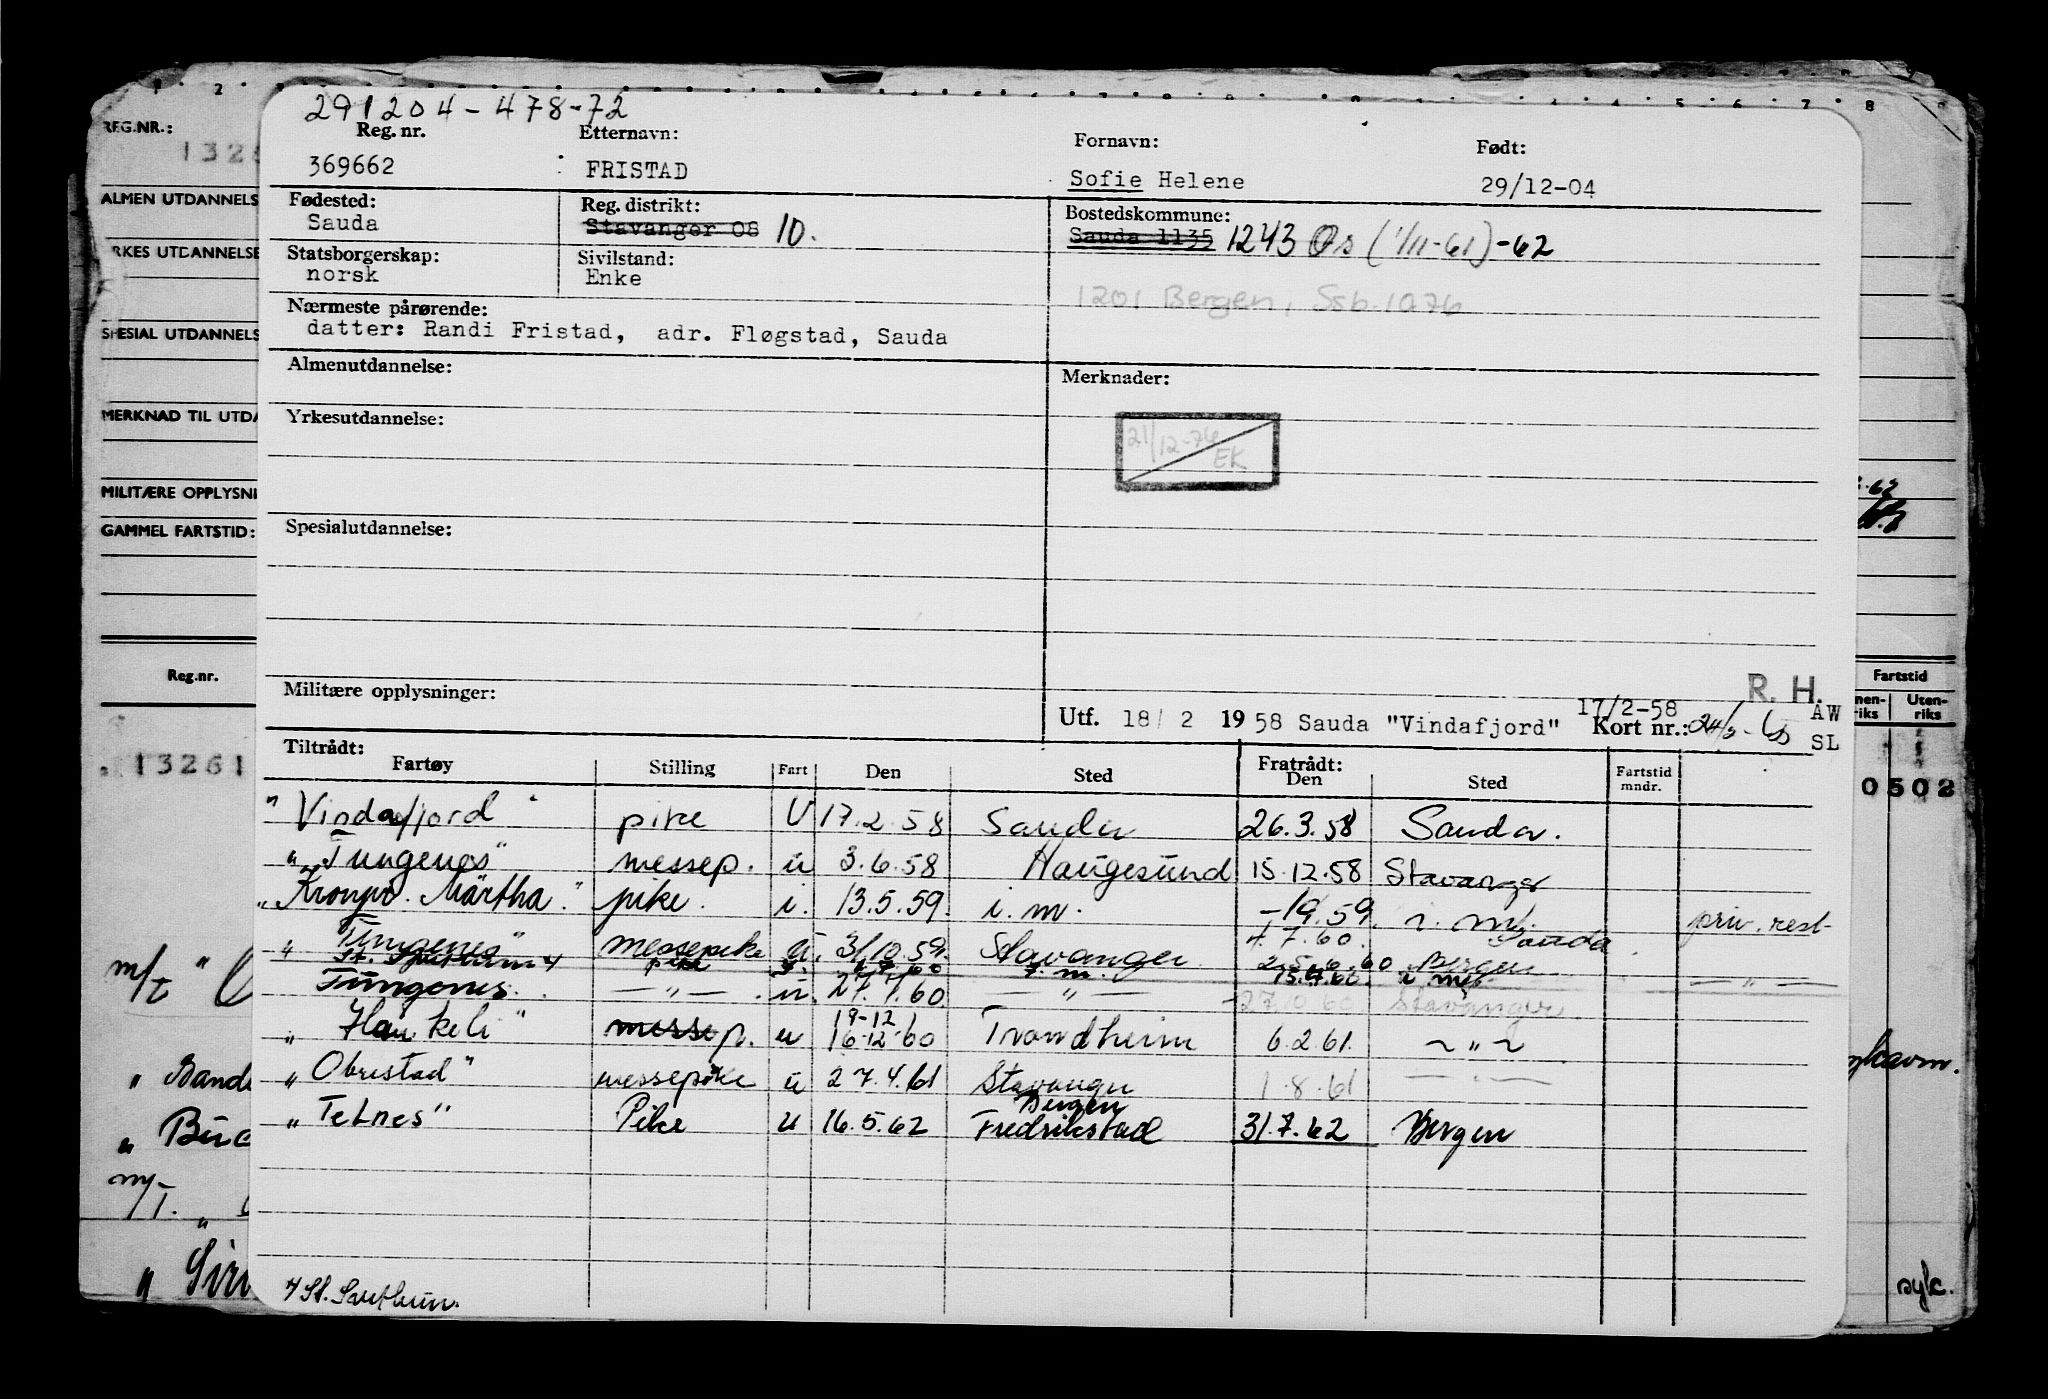 291204-478-72
REG.NR.:
Reg. nr. Etternavn: Fornavn: Født:
369662 FRISTAD Sofie Helene 29/12-04
ALMEN UTDANNELS
Fødested: Reg. distrikt: Bostedskommune:
Sauda Stavanger 08 10. Sauda 1135 1243 Os (1/11-61)-62
YRKES UTDANNELSE
Statsborgerskap: Sivilstand:
norsk Enke
1201 Bergen, Ssb. 1076
Nærmeste pårørende:
datter: Randi Fristad, adr. Fløgstad, Sauda
SPESIAL UTDANNELS
Almenutdannelse: Merknader:
MERKNAD TIL UTDA
Yrkesutdannelse:
21/12-76 EK
MILITÆRE OPPLYSNI
GAMMEL FARTSTID:
Spesialutdannelse:
Reg.nr. Fartstid
Militære opplysninger: R. H.
Utf. 18/ 2 1958 Sauda "Vindafjord" 17/2-58 Kort nr.: AW
SL
Uten-
riks
13261
0502
Tiltrådt: Fratrådt:
Fartøy Stilling Fart Den Sted Den Sted Fartstid mndr.
"Vindafjord" pike U 17.2.58 Sauda 26.3.58 Sauda.
"Tungenes" messep. u 3.6.58 Haugesund 15.12.58 Stavanger
"Kronpr. Märtha." pike. i. 13.5.59. i. m. -19.59. i. m. priv. rest-
"Tungenes" messepike u. 31/10.59. Stavanger 4.7.60. Sauda
pike i. m. Bergen
Tungenes. —"— . u. 27.7.60. —"— 27.10.60 Stavanger. —"—
"Haukeli" messep. u 9-12/16-12-60 Trondheim 6.2.61. ~"~
"Obrestad" messepike u 27.4.61 Stavanger 1.8.61 —"—
Bergen
"Ternes" Pike u 16.5.62 Fredrikstad 31.7.62 Bergen
syk.